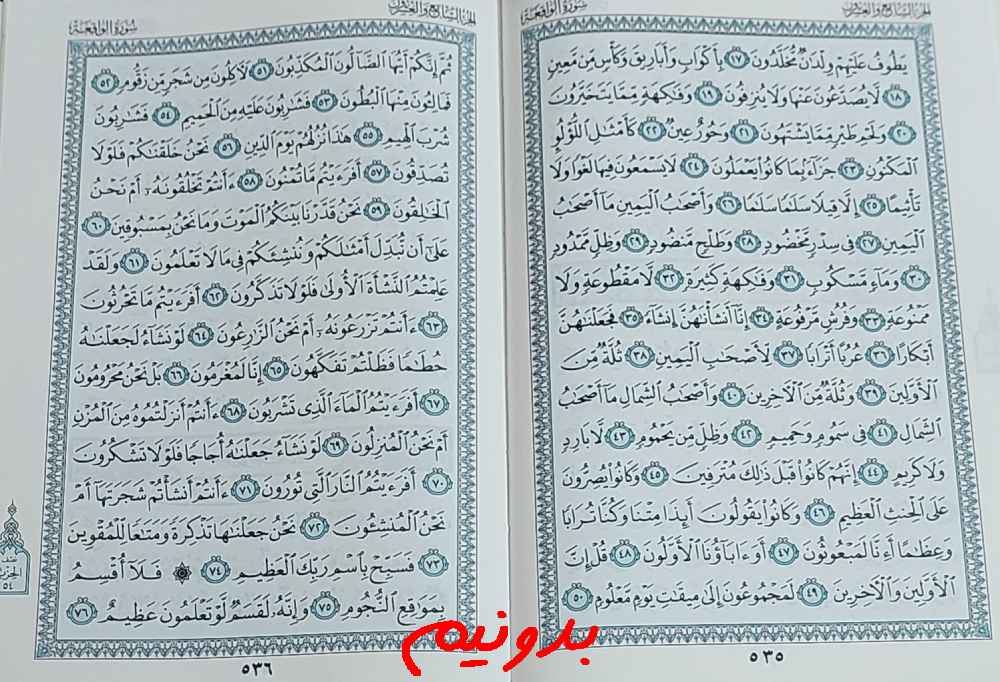 الجزء السابع والعشرون
سورة الواقعة
يَطُوفُ عَلَيْهِمْ وِلْدَٰنٌ مُّخَلَّدُونَ ١٧ بِأَكْوَابٍ وَأَبَارِيقَ وَكَأْسٍ مِّن مَّعِينٍ
١٨ لَّا يُصَدَّعُونَ عَنْهَا وَلَا يُنزِفُونَ ١٩ وَفَٰكِهَةٍ مِّمَّا يَتَخَيَّرُونَ
٢٠ وَلَحْمِ طَيْرٍ مِّمَّا يَشْتَهُونَ ٢١ وَحُورٌ عِينٌ ٢٢ كَأَمْثَٰلِ اللُّؤْلُوِٕ
الْمَكْنُونِ ٢٣ جَزَآءًۢ بِمَا كَانُوا يَعْمَلُونَ ٢٤ لَا يَسْمَعُونَ فِيهَا لَغْوًا وَلَا
تَأْثِيمًا ٢٥ إِلَّا قِيلًا سَلَٰمًا سَلَٰمًا ٢٦ وَأَصْحَٰبُ الْيَمِينِ مَآ أَصْحَٰبُ
الْيَمِينِ ٢٧ فِي سِدْرٍ مَّخْضُودٍ ٢٨ وَطَلْحٍ مَّنضُودٍ ٢٩ وَظِلٍّ مَّمْدُودٍ
٣٠ وَمَآءٍ مَّسْكُوبٍ ٣١ وَفَٰكِهَةٍ كَثِيرَةٍ ٣٢ لَّا مَقْطُوعَةٍ وَلَا
مَمْنُوعَةٍ ٣٣ وَفُرُشٍ مَّرْفُوعَةٍ ٣٤ إِنَّآ أَنشَأْنَٰهُنَّ إِنشَآءً ٣٥ فَجَعَلْنَٰهُنَّ
أَبْكَارًا ٣٦ عُرُبًا أَتْرَابًا ٣٧ لِّأَصْحَٰبِ الْيَمِينِ ٣٨ ثُلَّةٌ مِّنَ
الْأَوَّلِينَ ٣٩ وَثُلَّةٌ مِّنَ الْآخِرِينَ ٤٠ وَأَصْحَٰبُ الشِّمَالِ مَآ أَصْحَٰبُ
الشِّمَالِ ٤١ فِي سَمُومٍ وَحَمِيمٍ ٤٢ وَظِلٍّ مِّن يَحْمُومٍ ٤٣ لَّا بَارِدٍ
وَلَا كَرِيمٍ ٤٤ إِنَّهُمْ كَانُوا قَبْلَ ذَٰلِكَ مُتْرَفِينَ ٤٥ وَكَانُوا يُصِرُّونَ
عَلَى الْحِنثِ الْعَظِيمِ ٤٦ وَكَانُوا يَقُولُونَ أَئِذَا مِتْنَا وَكُنَّا تُرَابًا
وَعِظَٰمًا أَءِنَّا لَمَبْعُوثُونَ ٤٧ أَوَءَابَآؤُنَا الْأَوَّلُونَ ٤٨ قُلْ إِنَّ
الْأَوَّلِينَ وَالْآخِرِينَ ٤٩ لَمَجْمُوعُونَ إِلَىٰ مِيقَٰتِ يَوْمٍ مَّعْلُومٍ ٥٠
٥٣٥
الجزء السابع والعشرون
سورة الواقعة
ثُمَّ إِنَّكُمْ أَيُّهَا الضَّآلُّونَ الْمُكَذِّبُونَ ٥١ لَآكِلُونَ مِن شَجَرٍ مِّن زَقُّومٍ ٥٢
فَمَالِـُٔونَ مِنْهَا الْبُطُونَ ٥٣ فَشَٰرِبُونَ عَلَيْهِ مِنَ الْحَمِيمِ ٥٤ فَشَٰرِبُونَ
شُرْبَ الْهِيمِ ٥٥ هَٰذَا نُزُلُهُمْ يَوْمَ الدِّينِ ٥٦ نَحْنُ خَلَقْنَٰكُمْ فَلَوْلَا
تُصَدِّقُونَ ٥٧ أَفَرَءَيْتُم مَّا تُمْنُونَ ٥٨ ءَأَنتُمْ تَخْلُقُونَهُۥٓ أَمْ نَحْنُ
الْخَٰلِقُونَ ٥٩ نَحْنُ قَدَّرْنَا بَيْنَكُمُ الْمَوْتَ وَمَا نَحْنُ بِمَسْبُوقِينَ ٦٠
عَلَىٰٓ أَن نُّبَدِّلَ أَمْثَٰلَكُمْ وَنُنشِئَكُمْ فِي مَا لَا تَعْلَمُونَ ٦١ وَلَقَدْ
عَلِمْتُمُ النَّشْأَةَ الْأُولَىٰ فَلَوْلَا تَذَكَّرُونَ ٦٢ أَفَرَءَيْتُم مَّا تَحْرُثُونَ
٦٣ ءَأَنتُمْ تَزْرَعُونَهُۥٓ أَمْ نَحْنُ الزَّٰرِعُونَ ٦٤ لَوْ نَشَآءُ لَجَعَلْنَٰهُ
حُطَٰمًا فَظَلْتُمْ تَفَكَّهُونَ ٦٥ إِنَّا لَمُغْرَمُونَ ٦٦ بَلْ نَحْنُ مَحْرُومُونَ
٦٧ أَفَرَءَيْتُمُ الْمَآءَ الَّذِي تَشْرَبُونَ ٦٨ ءَأَنتُمْ أَنزَلْتُمُوهُ مِنَ الْمُزْنِ
أَمْ نَحْنُ الْمُنزِلُونَ ٦٩ لَوْ نَشَآءُ جَعَلْنَٰهُ أُجَاجًا فَلَوْلَا تَشْكُرُونَ
٧٠ أَفَرَءَيْتُمُ النَّارَ الَّتِي تُورُونَ ٧١ ءَأَنتُمْ أَنشَأْتُمْ شَجَرَتَهَآ أَمْ
نَحْنُ الْمُنشِـُٔونَ ٧٢ نَحْنُ جَعَلْنَٰهَا تَذْكِرَةً وَمَتَٰعًا لِّلْمُقْوِينَ
٧٣ فَسَبِّحْ بِاسْمِ رَبِّكَ الْعَظِيمِ ٧٤ ۞ فَلَآ أُقْسِمُ
بِمَوَٰقِعِ النُّجُومِ ٧٥ وَإِنَّهُۥ لَقَسَمٌ لَّوْ تَعْلَمُونَ عَظِيمٌ ٧٦
٥٣٦
الحزب
٥٤
بدونیم